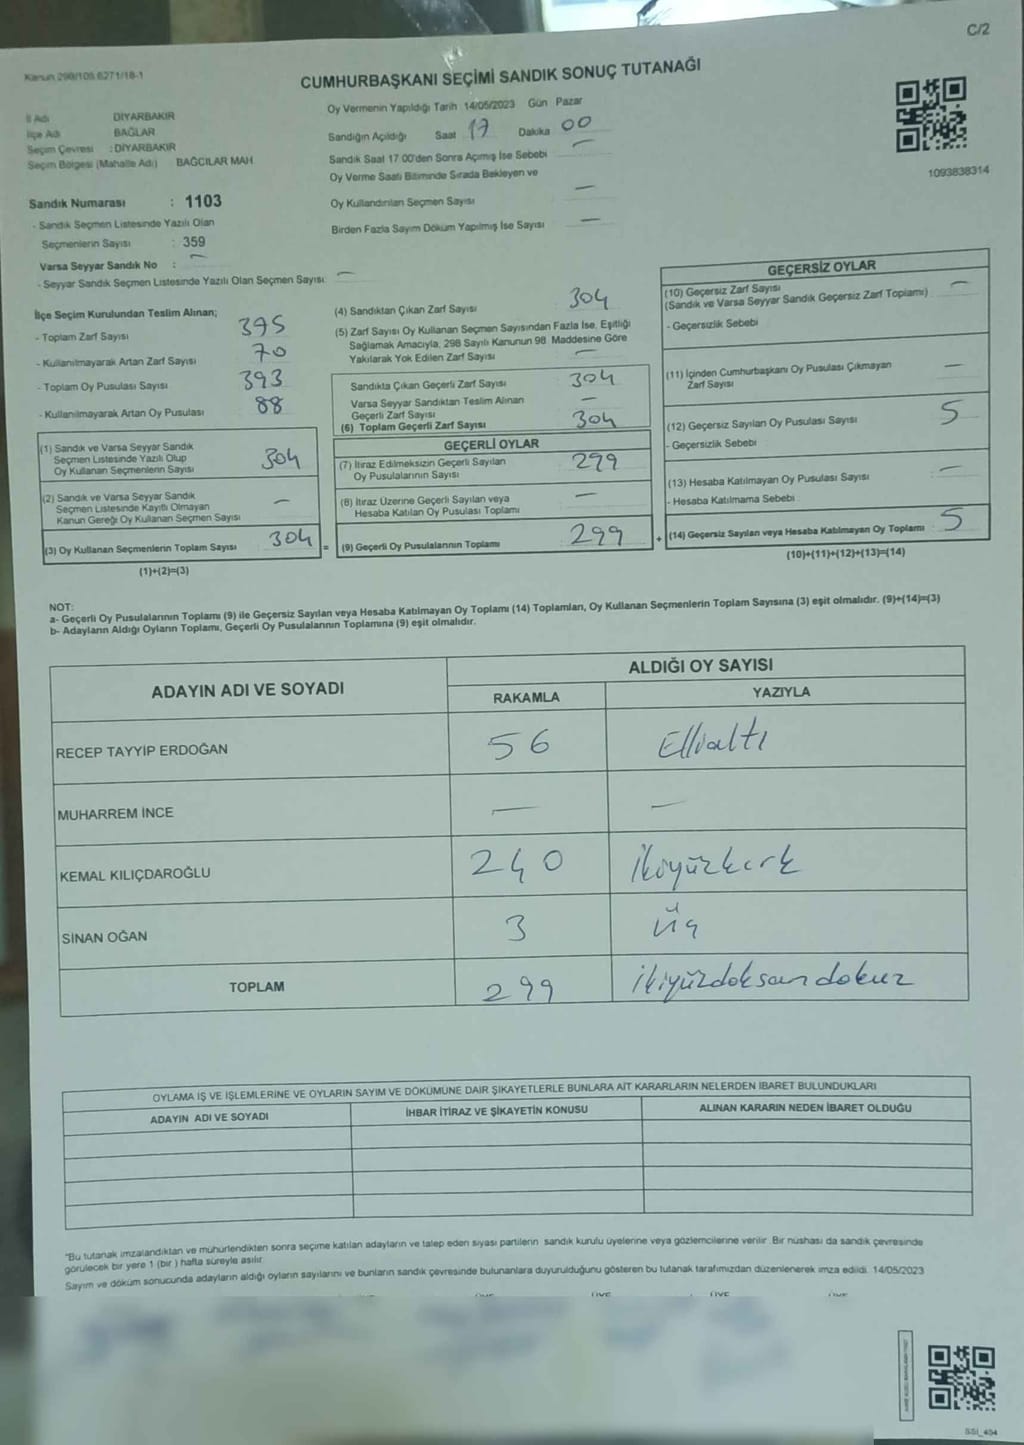 C/2
Kanun 298/105.6271/18-1
CUMHURBAŞKANI SEÇİMİ SANDIK SONUÇ TUTANAĞI
İl Adı DİYARBAKIR
İlçe Adı BAĞLAR
Seçim Çevresi : DİYARBAKIR
Seçim Bölgesi (Mahalle Adı) BAĞCILAR MAH
Sandık Numarası : 1103
- Sandık Seçmen Listesinde Yazılı Olan
Seçmenlerin Sayısı : 359
Varsa Seyyar Sandık No : -
- Seyyar Sandık Seçmen Listesinde Yazılı Olan Seçmen Sayısı: -
Oy Vermenin Yapıldığı Tarih 14/05/2023 Gün Pazar
Sandığın Açıldığı Saat 17 Dakika 00
Sandık Saat 17:00'den Sonra Açımış İse Sebebi -
Oy Verme Saati Bitiminde Sırada Bekleyen ve
Oy Kullandırılan Seçmen Sayısı -
Birden Fazla Sayım Döküm Yapılmış İse Sayısı -
1093838314
İlçe Seçim Kurulundan Teslim Alınan;
- Toplam Zarf Sayısı 395
- Kullanılmayarak Artan Zarf Sayısı 70
- Toplam Oy Pusulası Sayısı 393
- Kullanılmayarak Artan Oy Pusulası 88
(1) Sandık ve Varsa Seyyar Sandık
Seçmen Listesinde Yazılı Olup
Oy Kullanan Seçmenlerin Sayısı 304
(2) Sandık ve Varsa Seyyar Sandık
Seçmen Listesinde Kayıtlı Olmayan
Kanun Gereği Oy Kullanan Seçmen Sayısı -
(3) Oy Kullanan Seçmenlerin Toplam Sayısı 304 =
(1)+(2)=(3)
(4) Sandıktan Çıkan Zarf Sayısı 304
(5) Zarf Sayısı Oy Kullanan Seçmen Sayısından Fazla İse, Eşitliği
Sağlamak Amacıyla, 298 Sayılı Kanunun 98. Maddesine Göre
Yakılarak Yok Edilen Zarf Sayısı -
Sandıkta Çıkan Geçerli Zarf Sayısı 304
Varsa Seyyar Sandıktan Teslim Alınan
Geçerli Zarf Sayısı -
(6) Toplam Geçerli Zarf Sayısı 304
GEÇERLİ OYLAR
(7) İtiraz Edilmeksizin Geçerli Sayılan
Oy Pusulalarının Sayısı 299
(8) İtiraz Üzerine Geçerli Sayılan veya
Hesaba Katılan Oy Pusulası Toplamı -
(9) Geçerli Oy Pusulalarının Toplamı 299 +
GEÇERSİZ OYLAR
(10) Geçersiz Zarf Sayısı -
(Sandık ve Varsa Seyyar Sandık Geçersiz Zarf Toplamı)
- Geçersizlik Sebebi
(11) İçinden Cumhurbaşkanı Oy Pusulası Çıkmayan
Zarf Sayısı -
(12) Geçersiz Sayılan Oy Pusulası Sayısı 5
- Geçersizlik Sebebi
(13) Hesaba Katılmayan Oy Pusulası Sayısı -
- Hesaba Katılmama Sebebi
(14) Geçersiz Sayılan veya Hesaba Katılmayan Oy Toplamı 5
(10)+(11)+(12)+(13)=(14)
NOT:
a- Geçerli Oy Pusulalarının Toplamı (9) ile Geçersiz Sayılan veya Hesaba Katılmayan Oy Toplamı (14) Toplamları, Oy Kullanan Seçmenlerin Toplam Sayısına (3) eşit olmalıdır. (9)+(14)=(3)
b- Adayların Aldığı Oyların Toplamı, Geçerli Oy Pusulalarının Toplamına (9) eşit olmalıdır.
ADAYIN ADI VE SOYADI ALDIĞI OY SAYISI
RAKAMLA YAZIYLA
RECEP TAYYİP ERDOĞAN 56 Ellialtı
MUHARREM İNCE - -
KEMAL KILIÇDAROĞLU 240 İkiyüzkırk
SİNAN OĞAN 3 Üç
TOPLAM 299 ikiyüzdoksandokuz
OYLAMA İŞ VE İŞLEMLERİNE VE OYLARIN SAYIM VE DÖKÜMÜNE DAİR ŞİKAYETLERLE BUNLARA AİT KARARLARIN NELERDEN İBARET BULUNDUKLARI
ADAYIN ADI VE SOYADI İHBAR İTİRAZ VE ŞİKAYETİN KONUSU ALINAN KARARIN NEDEN İBARET OLDUĞU
*Bu tutanak imzalandıktan ve mühürlendikten sonra seçime katılan adayların ve talep eden siyasi partilerin sandık kurulu üyelerine veya gözlemcilerine verilir. Bir nüshası da sandık çevresinde
görülecek bir yere 1 (bir ) hafta süreyle asılır.
Sayım ve döküm sonucunda adayların aldığı oyların sayılarını ve bunların sandık çevresinde bulunanlara duyurulduğunu gösteren bu tutanak tarafımızdan düzenlenerek imza edildi. 14/05/2023
ÜYE ÜYE ÜYE ÜYE